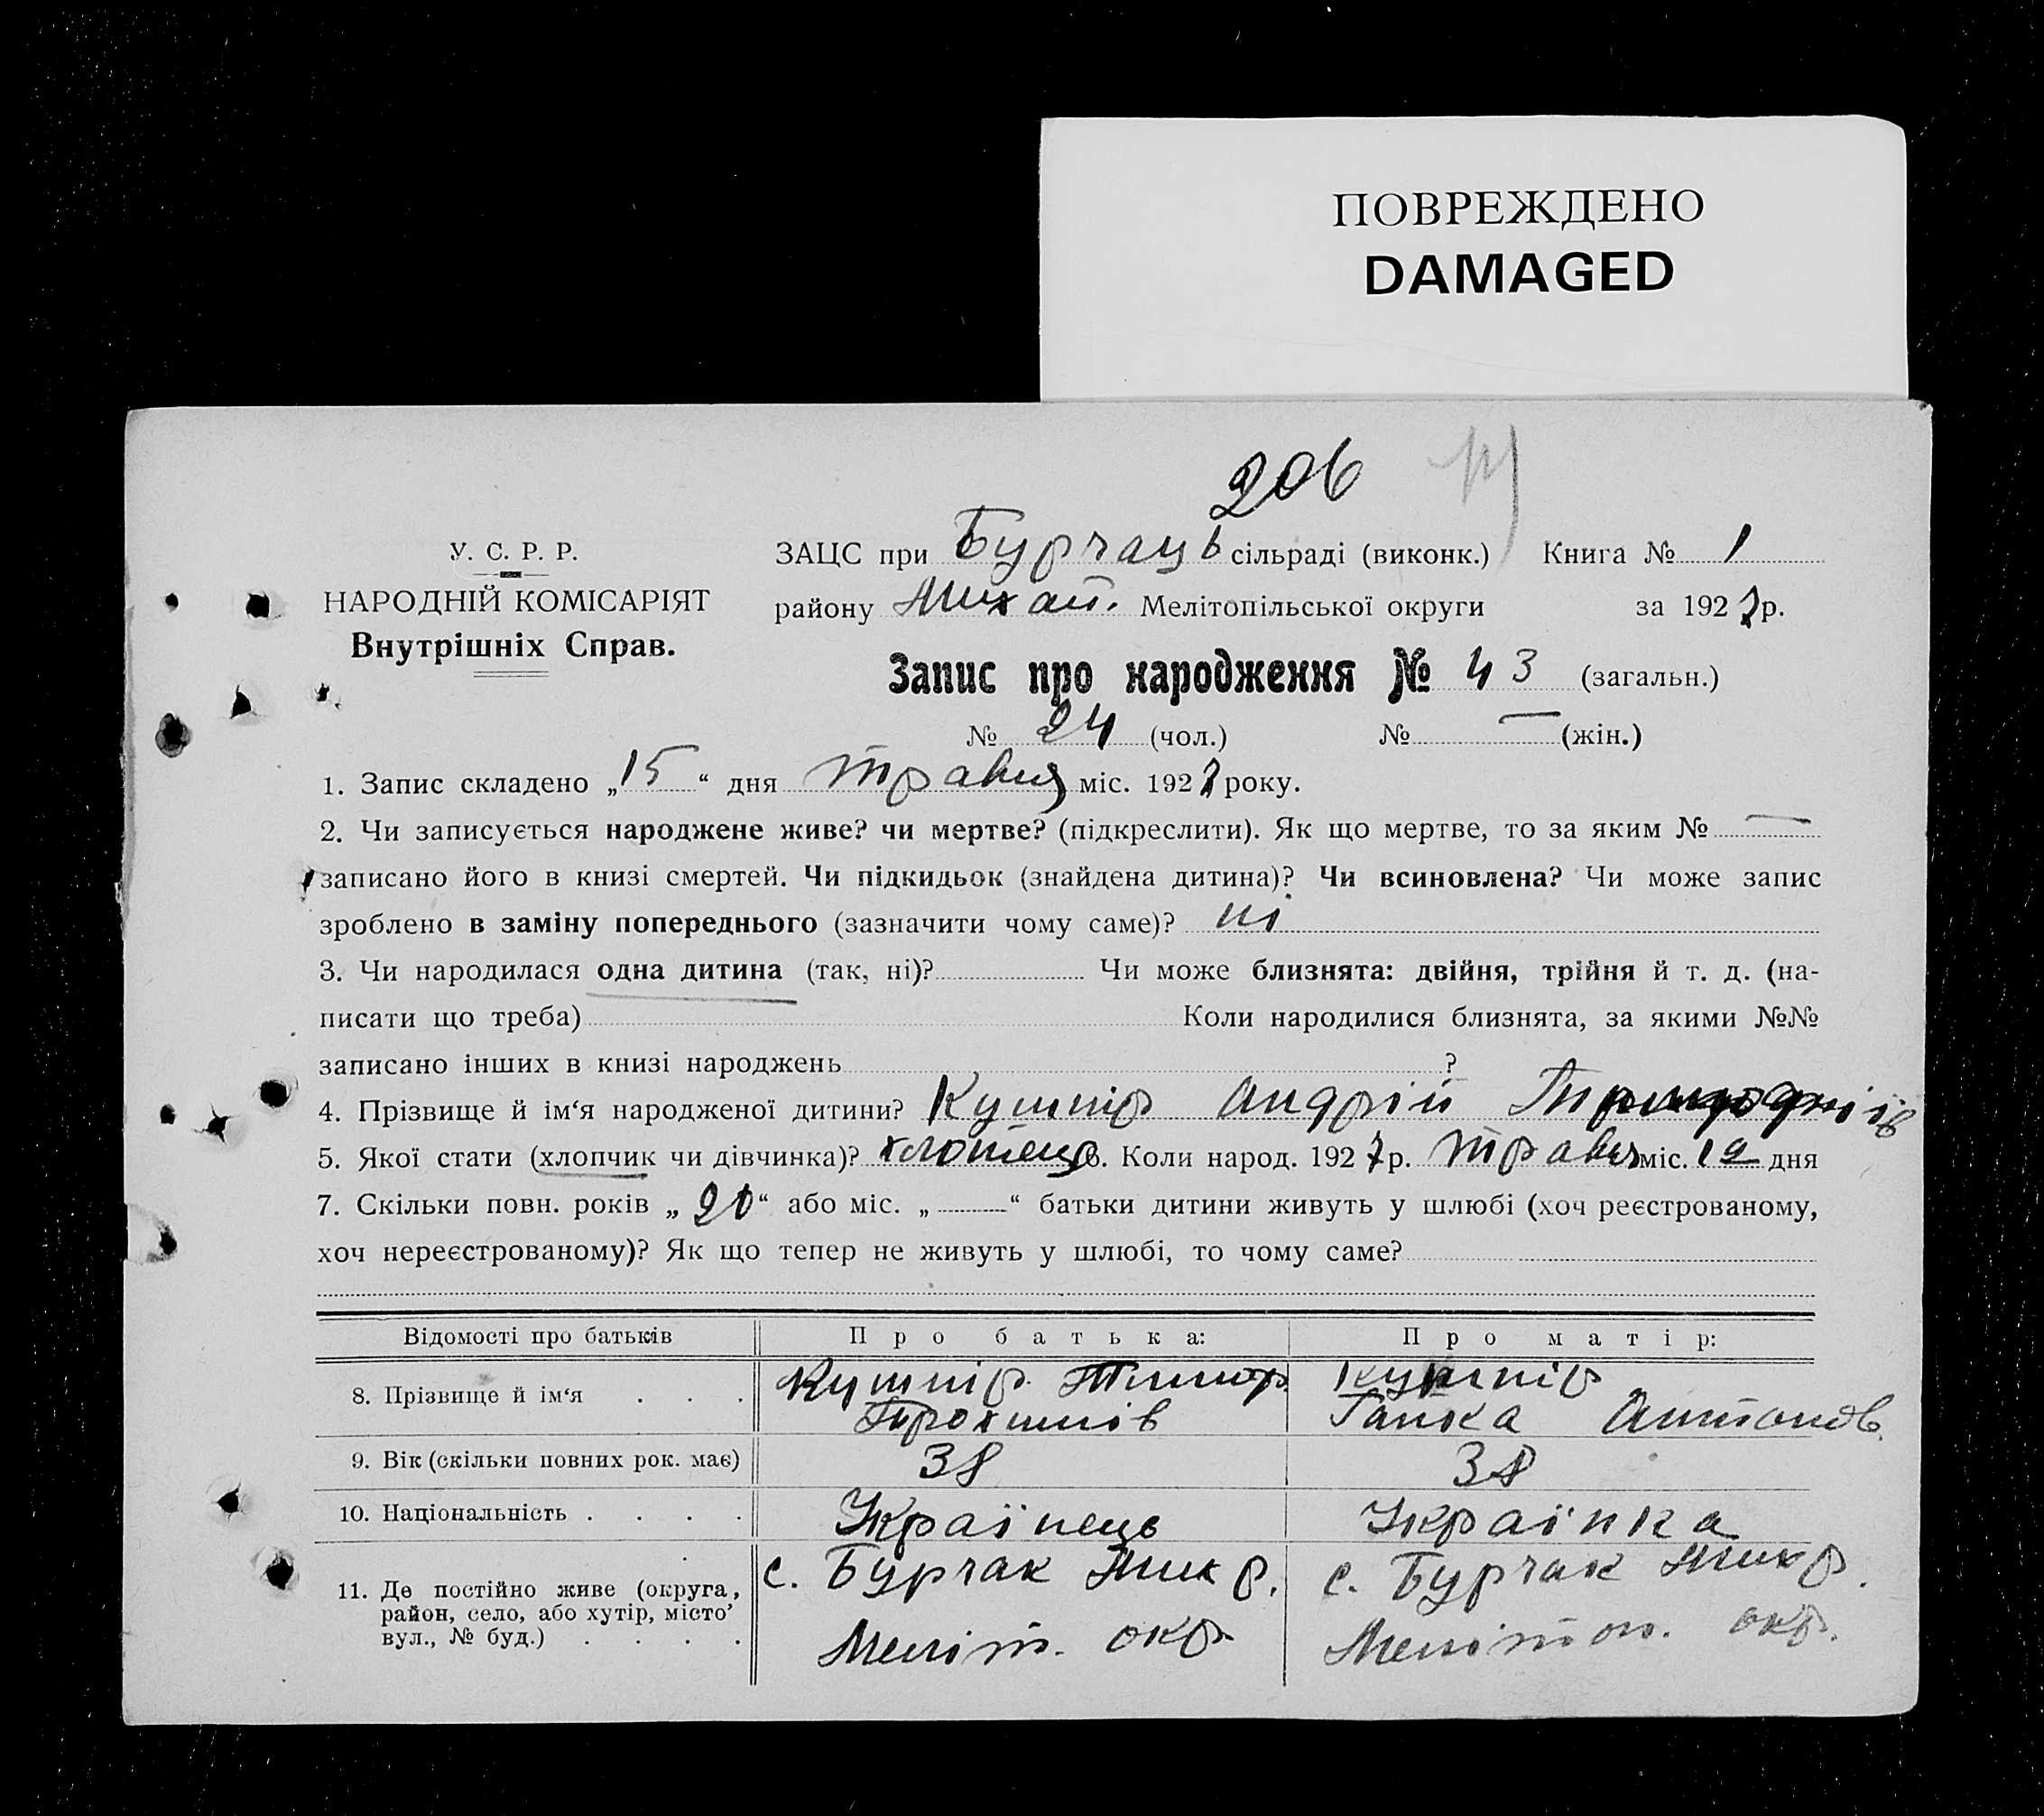 ПОВРЕЖДЕНО
DAMAGED
206
У. С. Р. Р.
НАРОДНІЙ КОМІСАРІЯТ
Внутрішніх Справ.
ЗАЦС при Бурчацьв сільраді (виконк.) Книга № 1
району Михай. Мелітопільської округи за 1927 р.
Запис про народження № 43 (загальн.)
№ 24 (чол.) № — (жін.)
1. Запис складено „15“ дня травня міс. 1927 року.
2. Чи записується народжене живе? чи мертве? (підкреслити). Як що мертве, то за яким № —
записано його в книзі смертей. Чи підкидьок (знайдена дитина)? Чи всиновлена? Чи може запис
зроблено в заміну попереднього (зазначити чому саме)? ні
3. Чи народилася одна дитина (так, ні)? Чи може близнята: двійня, трійня й т. д. (на-
писати що треба) Коли народилися близнята, за якими №№
записано інших в книзі народжень ?
4. Прізвище й ім‘я народженої дитини? Кушнір Андрій
5. Якої стати (хлопчик чи дівчинка)? хлопець 6. Коли народ. 1927 р. травня міс. 12 дня
7. Скільки повн. років „20“ або міс. „ “ батьки дитини живуть у шлюбі (хоч реєстрованому,
хоч нереєстрованому)? Як що тепер не живуть у шлюбі, то чому саме?
Відомості про батьків Про батька: Про матір:
8. Прізвище й ім‘я . . . Кушнір Тимоф Кушнір
Трохимів Гапка Антонов.
9. Вік (скільки повних рок. має) 38 38
10. Національність . . . . Українець Українка
11. Де постійно живе (округа, с. Бурчак Мих р. с. Бурчак Мих р.
район, село, або хутір, місто’
вул., № буд.) . . . . Меліт. окр. Мелітоп. окр.